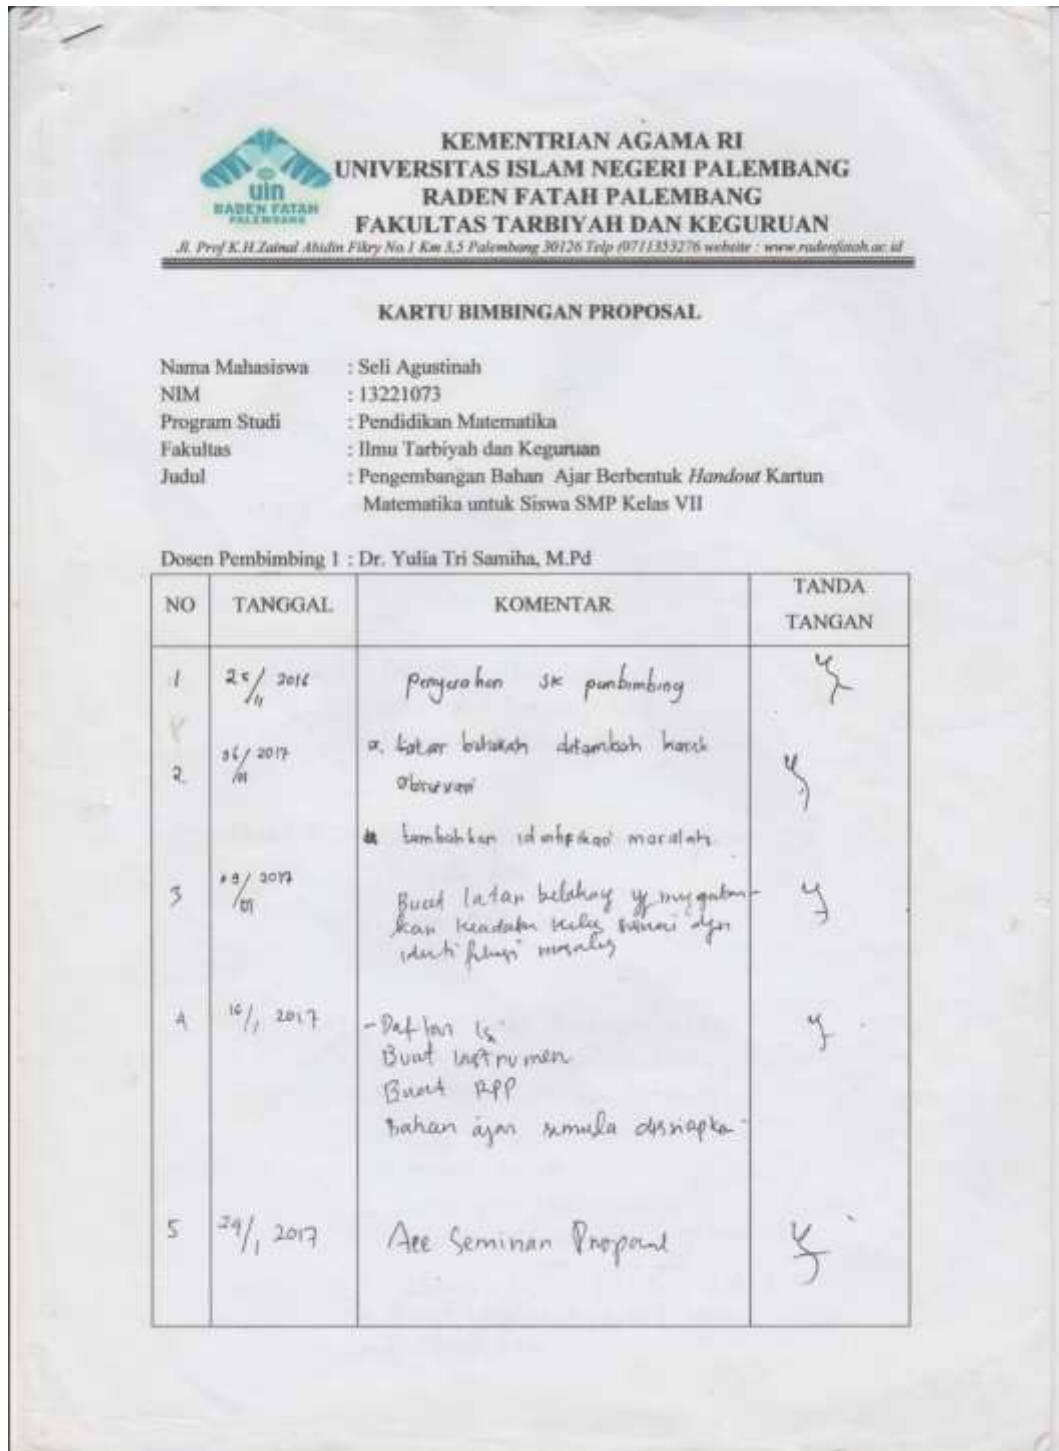 KEMENTRIAN AGAMA RI
UNIVERSITAS ISLAM NEGERI PALEMBANG
RADEN FATAH PALEMBANG
FAKULTAS TARBIYAH DAN KEGURUAN
uin
RADEN FATAH
PALEMBANG
Jl. Prof K.H.Zainal Abidin Fikry No.1 Km 3,5 Palembang 30126 Telp (0711353276 website : www.radenfatah.ac.id
KARTU BIMBINGAN PROPOSAL
Nama Mahasiswa : Seli Agustinah
NIM : 13221073
Program Studi : Pendidikan Matematika
Fakultas : Ilmu Tarbiyah dan Keguruan
Judul : Pengembangan Bahan Ajar Berbentuk Handout Kartun
Matematika untuk Siswa SMP Kelas VII
Dosen Pembimbing 1 : Dr. Yulia Tri Samiha, M.Pd
NO TANGGAL KOMENTAR TANDA
TANGAN
1 25/11 2016 Penyerahan SK pembimbing
2. 06/01 2017 a. Latar belakang ditambah hasil
observasi
tambahkan identifikasi masalah
3 09/01 2017 Buat latar belakang yg menggambar-
kan keadaan kelas sesuai dgn
identifikasi masalah
4 16/1 2017 - Daftar isi
Buat instrumen
Buat RPP
Bahan ajar semula
5 24/1 2017 Acc Seminar Proposal